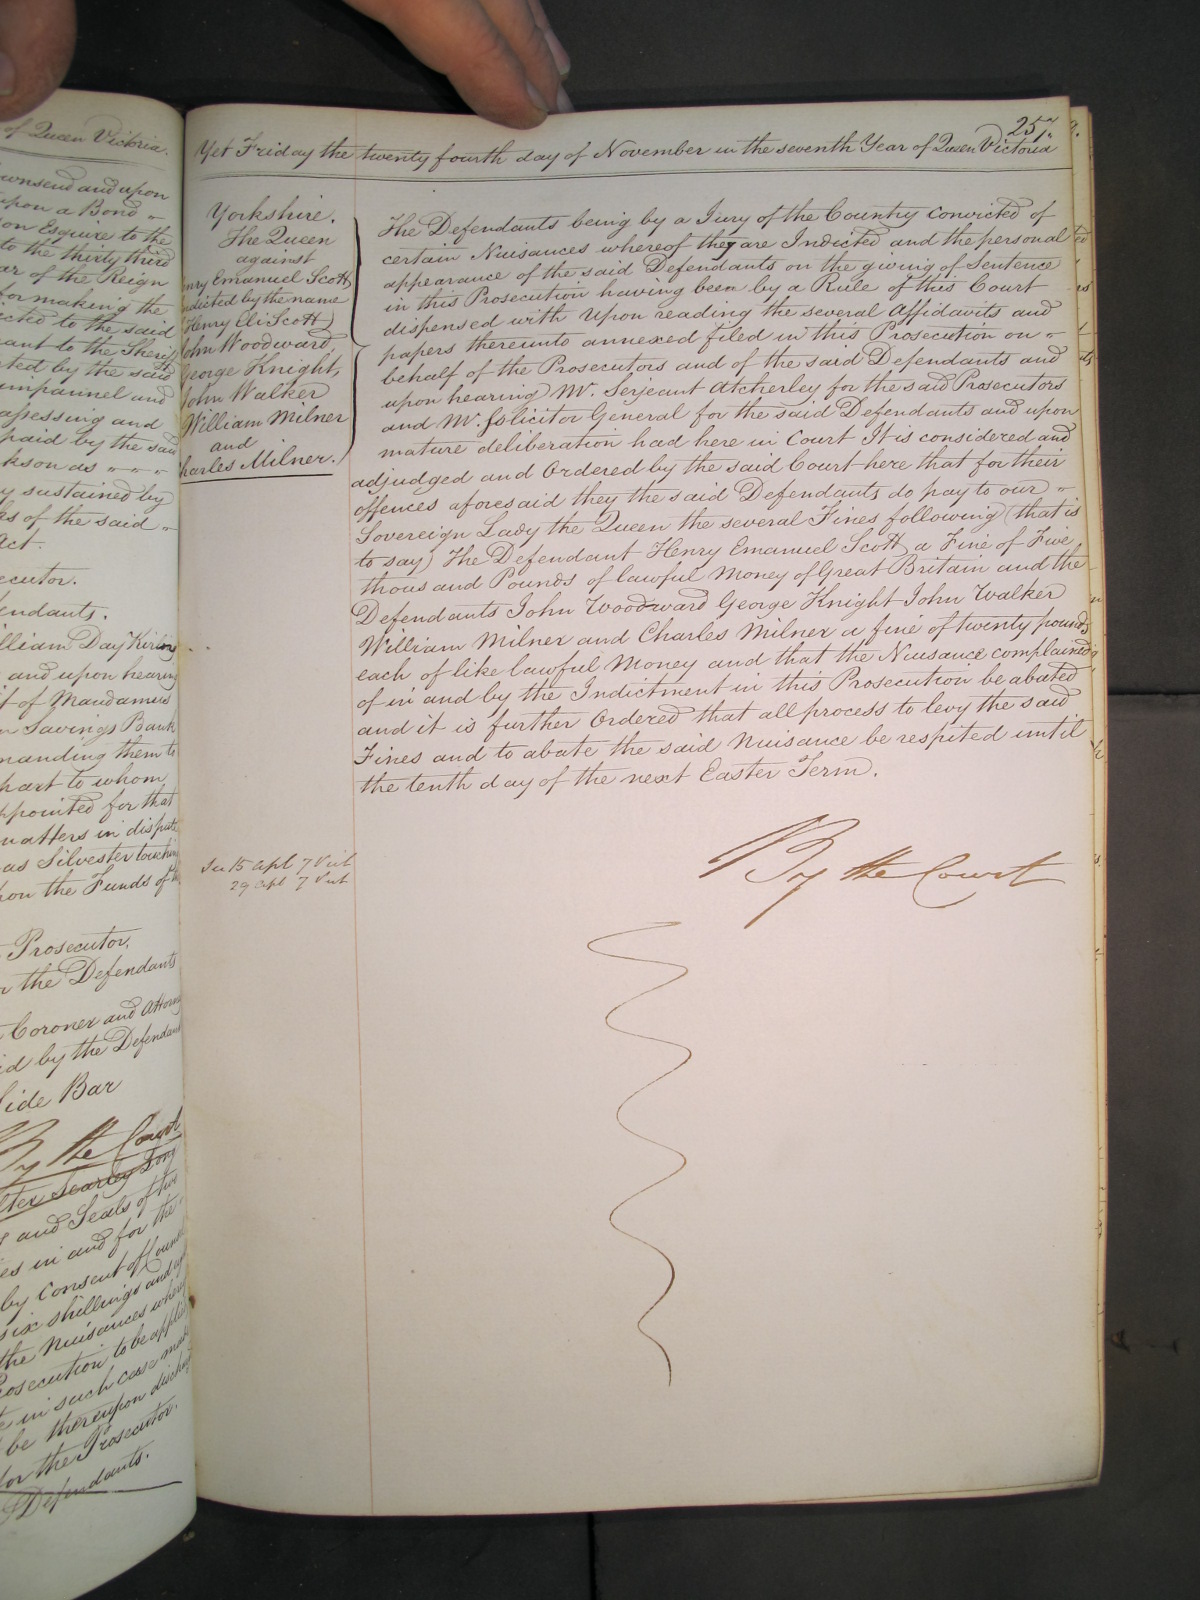 of Queen Victoria.
ownsend and upon
upon a Bond
on Esquire to the
to the thirty third
ar of the Reign
for making the
cted to the said
ant to the Sheriff
ted by the said
umpannel and
apessing and
paid by the said
kson as
y sustained by
as of the said
act.
ecutor.
endants.
illiam Day Kirling
and upon hearing
it of Mandamus
n Savings Bank
manding them to
part to whom
ppointed for that
matters in dispute
as Silvester touching
pon the Funds of
Prosecutor,
r the Defendants
Coroner and Attorney
id by the Defendant
Side Bar
By the Court
and Seals of two
es in and for the
by consent of Counsel
six shillings and
the Nuisances where
Prosecution to be applied
in such case made
be thereupon discharg
for the Prosecutor.
Defendants.
257.
Yet Friday the twenty fourth day of November in the seventh Year of Queen Victoria
Yorkshire.
The Queen
against
enry Emanuel Scott
ndicted by the name
Henry Eli Scott)
John Woodward,
George Knight,
John Walker
William Milner
and
harles Milner.
The Defendants being by a Jury of the Country convicted of
certain Nuisances whereof they are Indicted and the personal
appearance of the said Defendants on the giving of Sentence
in this Prosecution having been by a Rule of this Court
dispensed with Upon reading the several Affidavits and
papers thereunto annexed filed in this Prosecution on
behalf of the Prosecutors and of the said Defendants and
upon hearing Mr. Serjeant Atcherley for the said Prosecutors
and Mr. Solicitor General for the said Defendants and upon
mature deliberation had here in Court It is considered and
adjudged and Ordered by the said Court here that for their
offences aforesaid they the said Defendants do pay to our
Sovereign Lady the Queen the several Fines following (that is
to say) The Defendant Henry Emanuel Scott a Fine of Five
thousand Pounds of lawful Money of Great Britain and the
Defendants John Woodward George Knight John Walker
William Milner and Charles Milner a fine of twenty pounds
each of like lawful Money and that the Nuisance complained
of in and by the Indictment in this Prosecution be abated
and it is further Ordered that all process to levy the said
Fines and to abate the said Nuisance be respited until
the tenth day of the next Easter Term.
See 15 Apl 7 Vict
29 Apl 7 Vict
By the Court